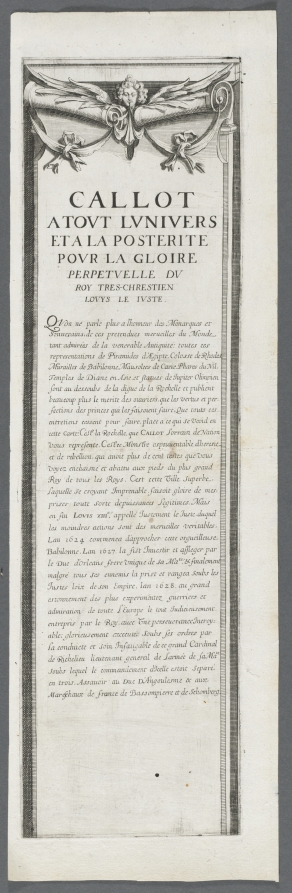 CALLOT
A TOVT LVNIVERS
ET A LA POSTERITE
POVR LA GLOIRE
PERPETVELLE DV
ROY TRES-CHRESTIEN
LOVYS LE IVSTE.
Qu'on ne parle plus a lhonneur des Monarques et
Souuerains de ces pretendues merueilles du Monde,
tant admirées de la venerable Antiquite: toutes ces
representations de Piramides d'Egipte, Colosse de Rhodes
Murailles de Babilonne, Mausolees de Carie, Phares du Nil
Temples de Diane en Asie, et statues de Jupiter Olimpien,
sont au dessoubs de la digue de la Rochelle et publient
beaucoup plus le merite des ouuriers que les vertus et per
fections des princes qui les faisoient faire. Que toute ces
entretiens cessent pour faire place a ce qui se void en
cette Carte: C'est la Rochelle, que Callot Lorrain de Nation
vous represente. C'est ce Monstre espouuantable d'heresie
et de rebellion qui auoit plus de cent testes que vous
voyez enchaisne et abatu aux pieds du plus grand
Roy de tous les Roys. C'est cette Ville Superbe,
laquelle se croyant Imprenable faisoit gloire de mes
priser toute sorte depuissances Legitimes. Mais
en fin Lovys xiii, appellé Iustement le Iuste, duquel
les moindres actions sont des merueilles veritables.
Lan 1624 commenca dapprocher cette orgueilleuse
Babilonne. Lan 1627 la fist Inuestir et assieger par
le Duc d'Orleans frere Vnique de sa Ma.te Et finalement
malgré tous ses ennemis la prist et rangea soubs les
Iustes loix de son Empire. lan 1628. au grand
estonnement des plus experimentez guerriers et
admiration de toute l'Europe le tout Iudicieusement
entrepris par le Roy, auec Vne perseuerance Incroy
able, glorieusement executé Soubs ses ordres par
la conduite et soin Infatigable de ce grand Cardinal
de Richelieu lieutenant general de Larmée de sa Ma.te
Soubs lequel le commandement d'Icelle estoit Separé
en trois Assauoir au Duc D'Angoulesme & aux
Mareschaux de france de Bassompierre et de Schomberg.